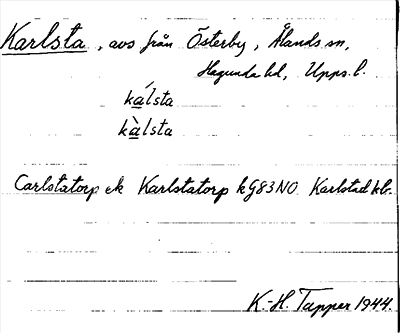 Karlsta, avs från Österby, Ålands sn,
Hagunda hd, Upps. l.
ká̲lsta
kà̲lsta
Carlstatorp ek Karlstatorp kG83NO Karlstad kbr.
K.-H. Tapper 1944.